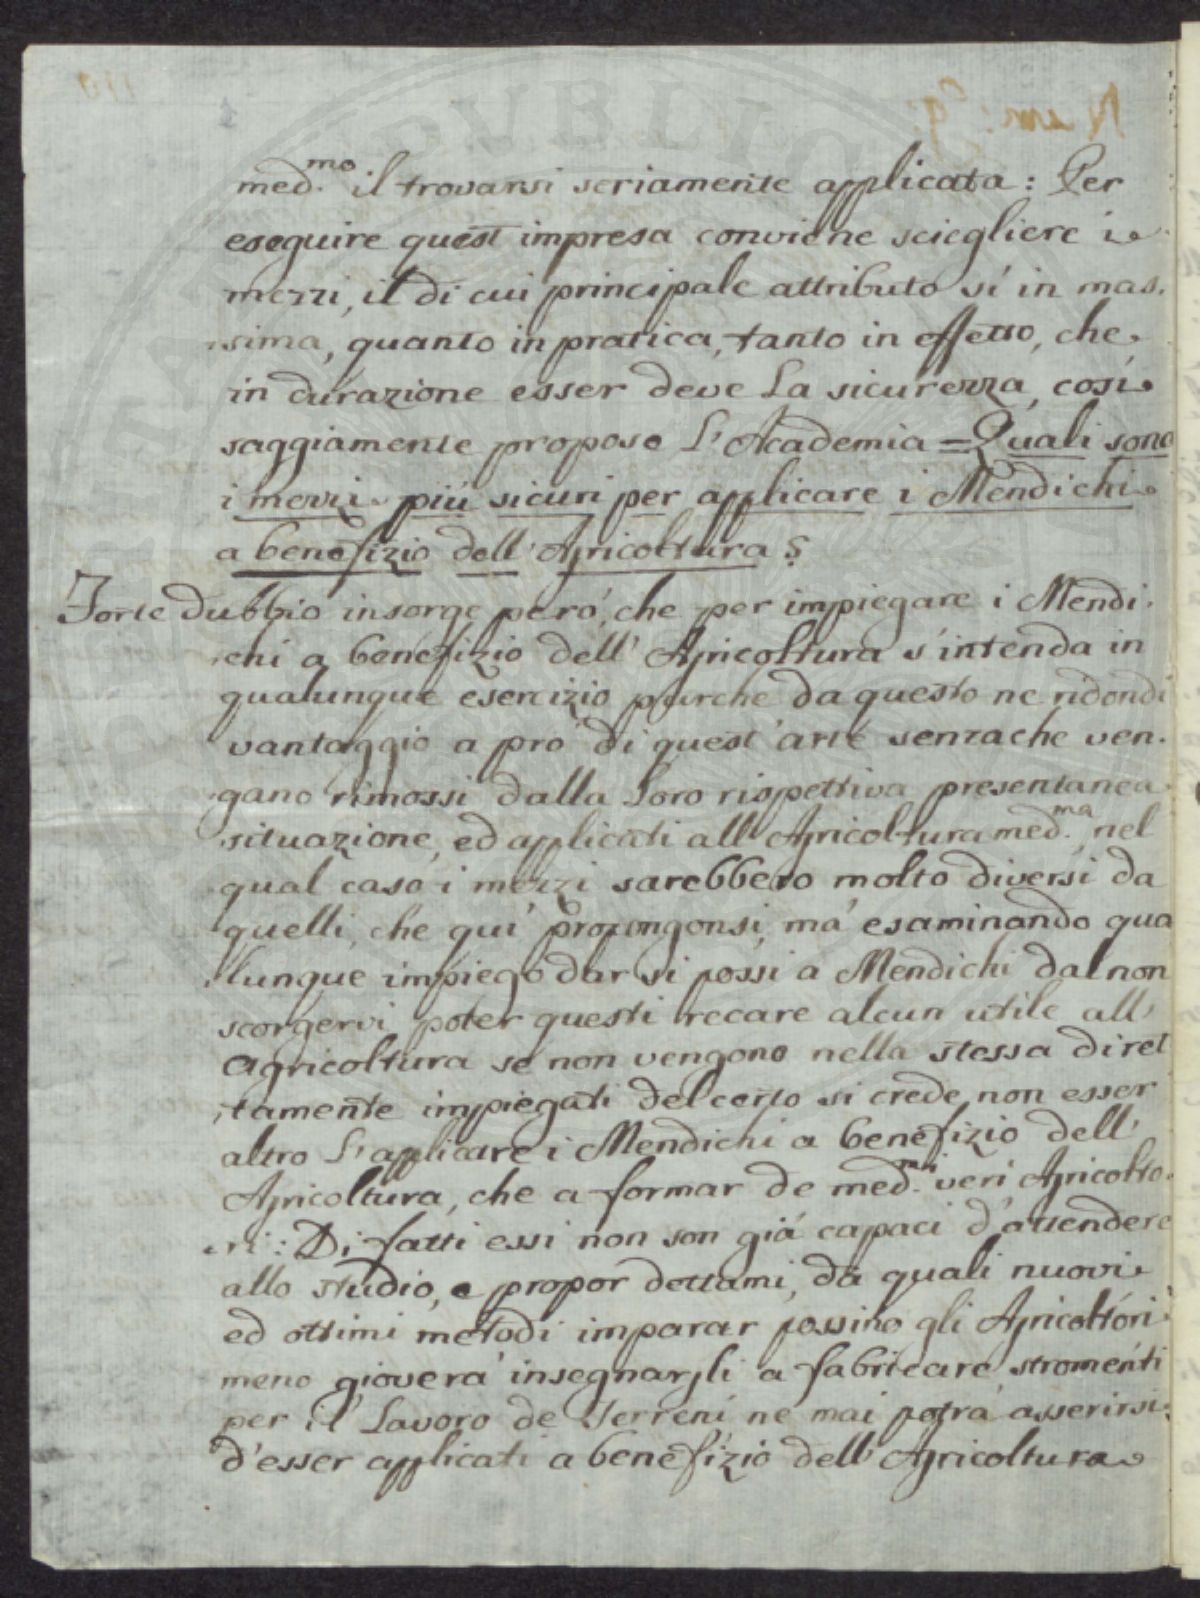 med.mo il trovarsi seriamente applicata: Per
eseguire quest impresa conviene sciegliere i
mezzi, il di cui principale attributo sí in mas-
sima, quanto in pratica, tanto in effetto, che
in durazione esser deve La sicurezza, cosi
saggiamente propose L'Academia = Quali sono
i mezzi piú sicuri per applicare i Mendichi
a benefizio dell'Agricoltura?
Forte dubbio insorge peró, che per impiegare i Mendi-
chi a benefizio dell'Agricoltura s'intenda in
qualunque esercizio purche da questo ne ridondi
vantaggio a pro' di quest'arte senzache ven-
gano rimossi dalla Loro rispettiva presentanea
situazione, ed applicati all'Agricoltura med.ma, nel
qual caso i mezzi sarebbero molto diversi da
quelli, che quí propongonsi, má esaminando qua
lunque impiego dar si possi a Mendichi dal non
scorgervi poter questi recare alcun utile all'
Agricoltura se non vengono nella stessa diret
tamente impiegati del certo si crede non esser
altro L'applicare i Mendichi a benefizio dell'
Agricoltura, che a formar de med.mi veri Agricolto-
ri: Di fatti essi non son giá capaci d'attendere
allo studio, e propor dettami, da quali nuovi
ed ottimi metodi imparar possino gli Agricoltori
meno gioverá insegnargli a fabricare stromenti
per il Lavoro de Terreni ne mai potrá asserirsi
d'esser applicati a benefizio dell'Agricoltura